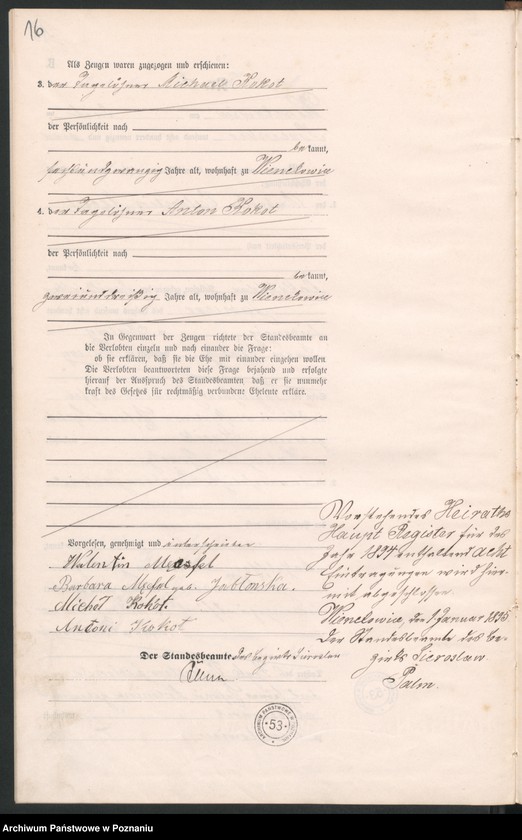 16
Als Zeugen waren zugezogen und erschienen:
3. der Tagelöhner Michael Kokot
der Persönlichkeit nach
be kannt,
sechsundzwanzig Jahre alt, wohnhaft zu Wienclowice
4. der Tagelöhner Anton Kokot
der Persönlichkeit nach
be kannt,
zweiunddreißig Jahre alt, wohnhaft zu Wienclowice
In Gegenwart der Zeugen richtete der Standesbeamte an
die Verlobten einzeln und nach einander die Frage:
ob sie erklären, daß sie die Ehe mit einander eingehen wollen.
Die Verlobten beantworteten diese Frage bejahend und erfolgte
hierauf der Ausspruch des Standesbeamten, daß er sie nunmehr
kraft des Gesetzes für rechtmäßig verbundene Eheleute erkläre.
Vorgelesen, genehmigt und unterschrieben
Walentin
Barbara geb. Jabłonska.
Michał Kokot.
Antoni Kokot
Der Standesbeamte des Bezirks Sieroslaw
Palm
Vorstehendes Heiraths
Haupt Register für das
Jahr 1894 enthaltend acht
Eintragungen wird hier-
mit abgeschlossen.
Wienclowice, den 1 Januar 1895.
Der Standesbeamte des Be-
zirks Sieroslaw.
Palm.
ARCHIWUM PAŃSTWOWE W POZNANIU
53
Archiwum Państwowe w Poznaniu